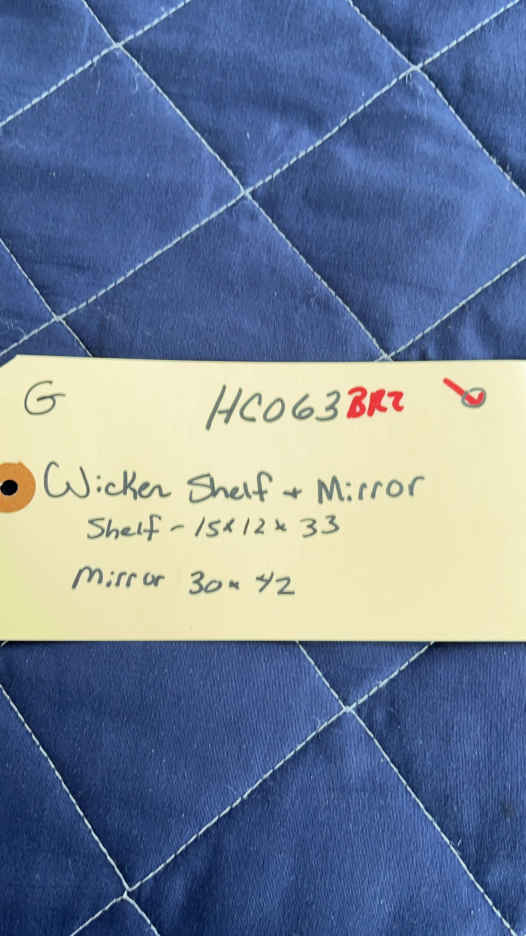 G HC063 BR2
Wicker Shelf + Mirror
Shelf - 15x12x33
Mirror 30x42